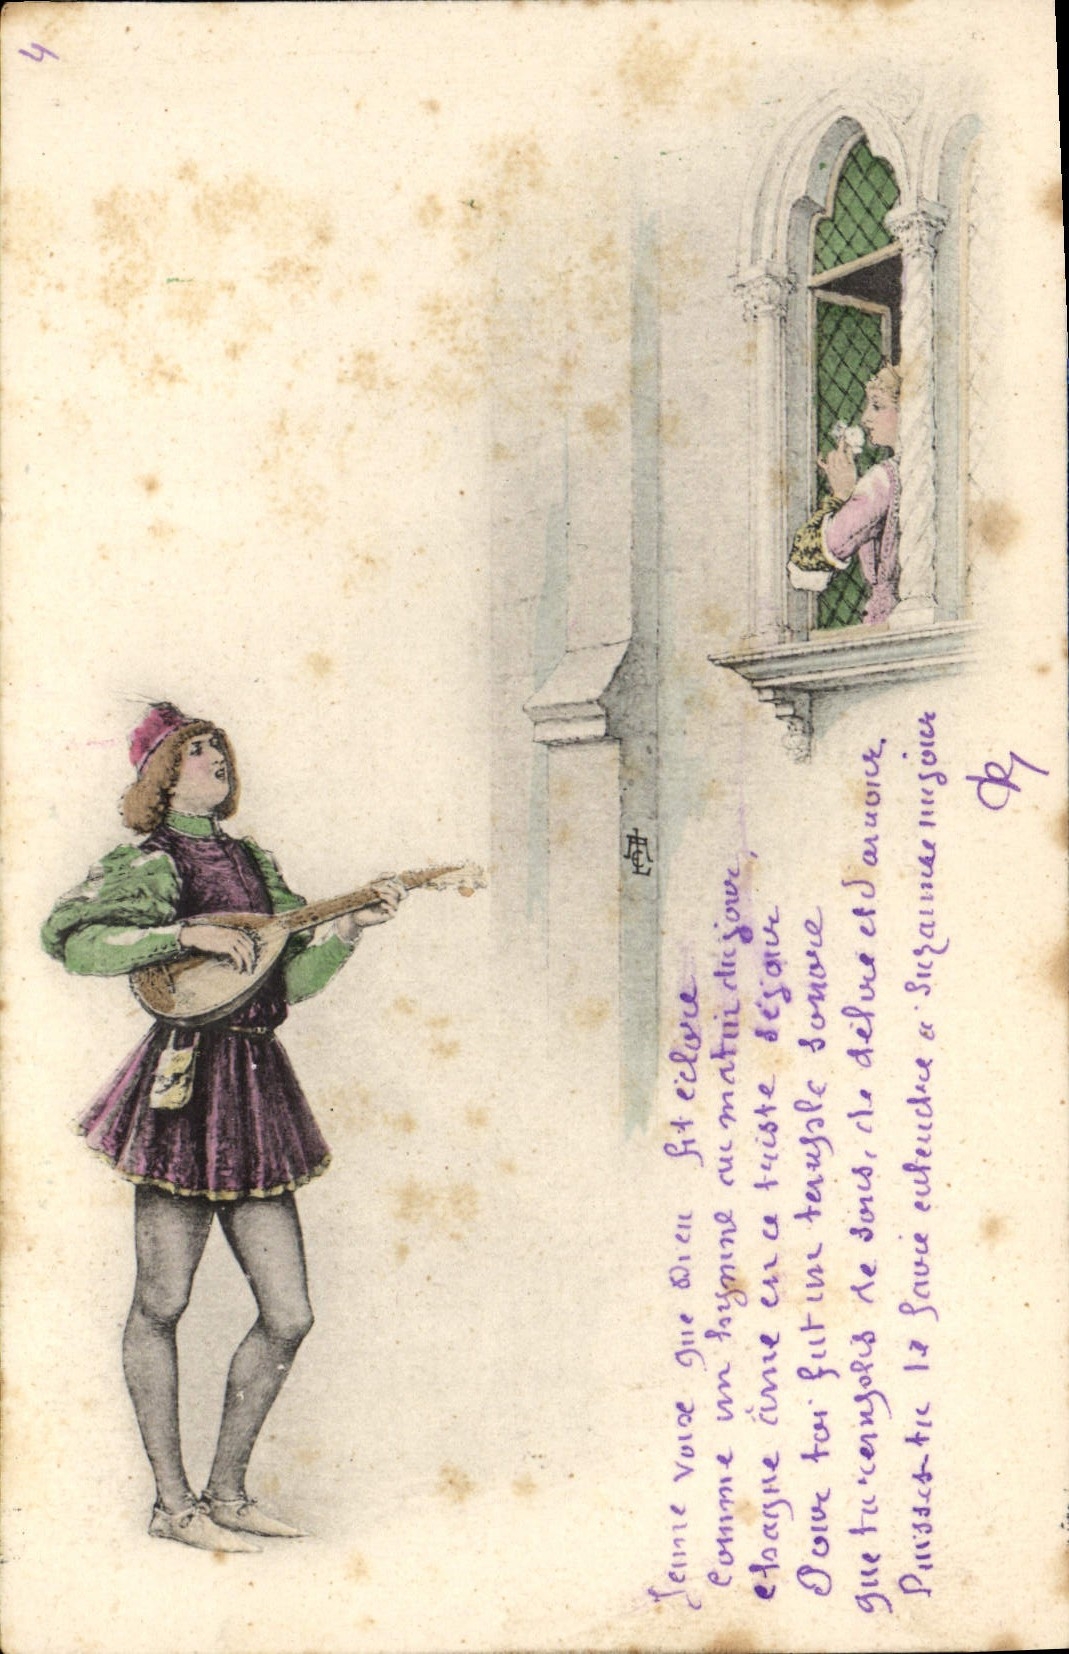 4
Jeune voix que Dieu fit éclore
Comme un hymne au matin du jour,
chaque âme en ce triste séjour
Pour toi fut un temple sonore
que tu remplis de sons, de délire et d'amour.
Puisses-tu le faire entendre à Suzanne